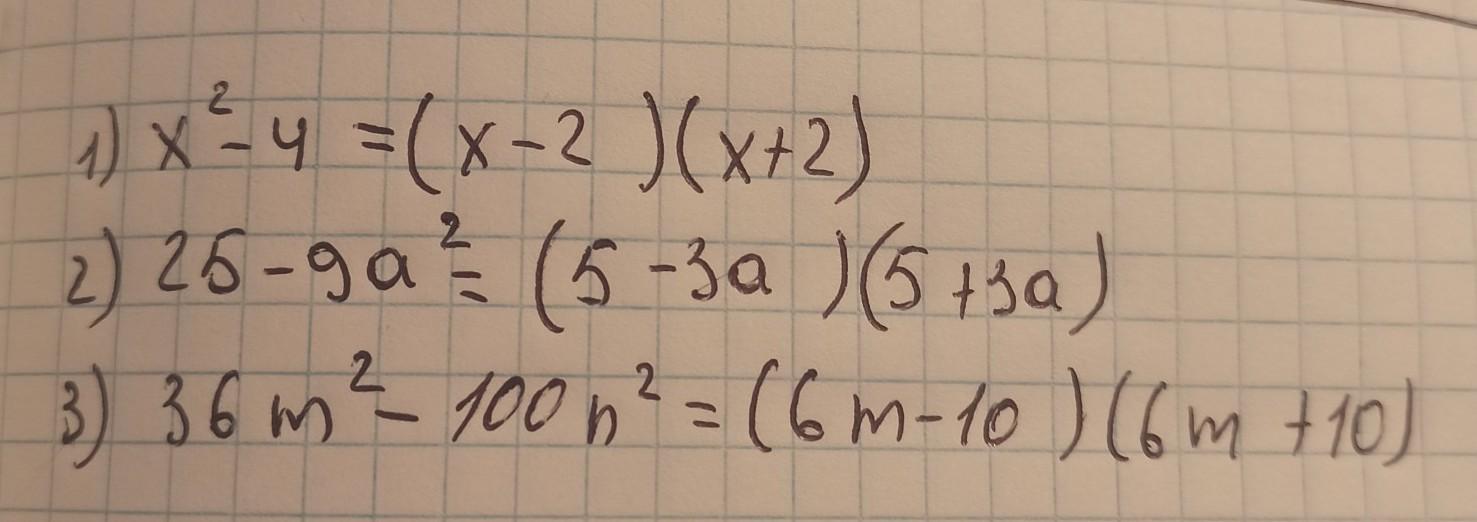 1) x² - 4 = (x - 2 )(x + 2)
2) 25 - 9a² = (5 - 3a )(5 + 3a)
3) 36 m² - 100 n² = (6 m - 10 )(6 m + 10)